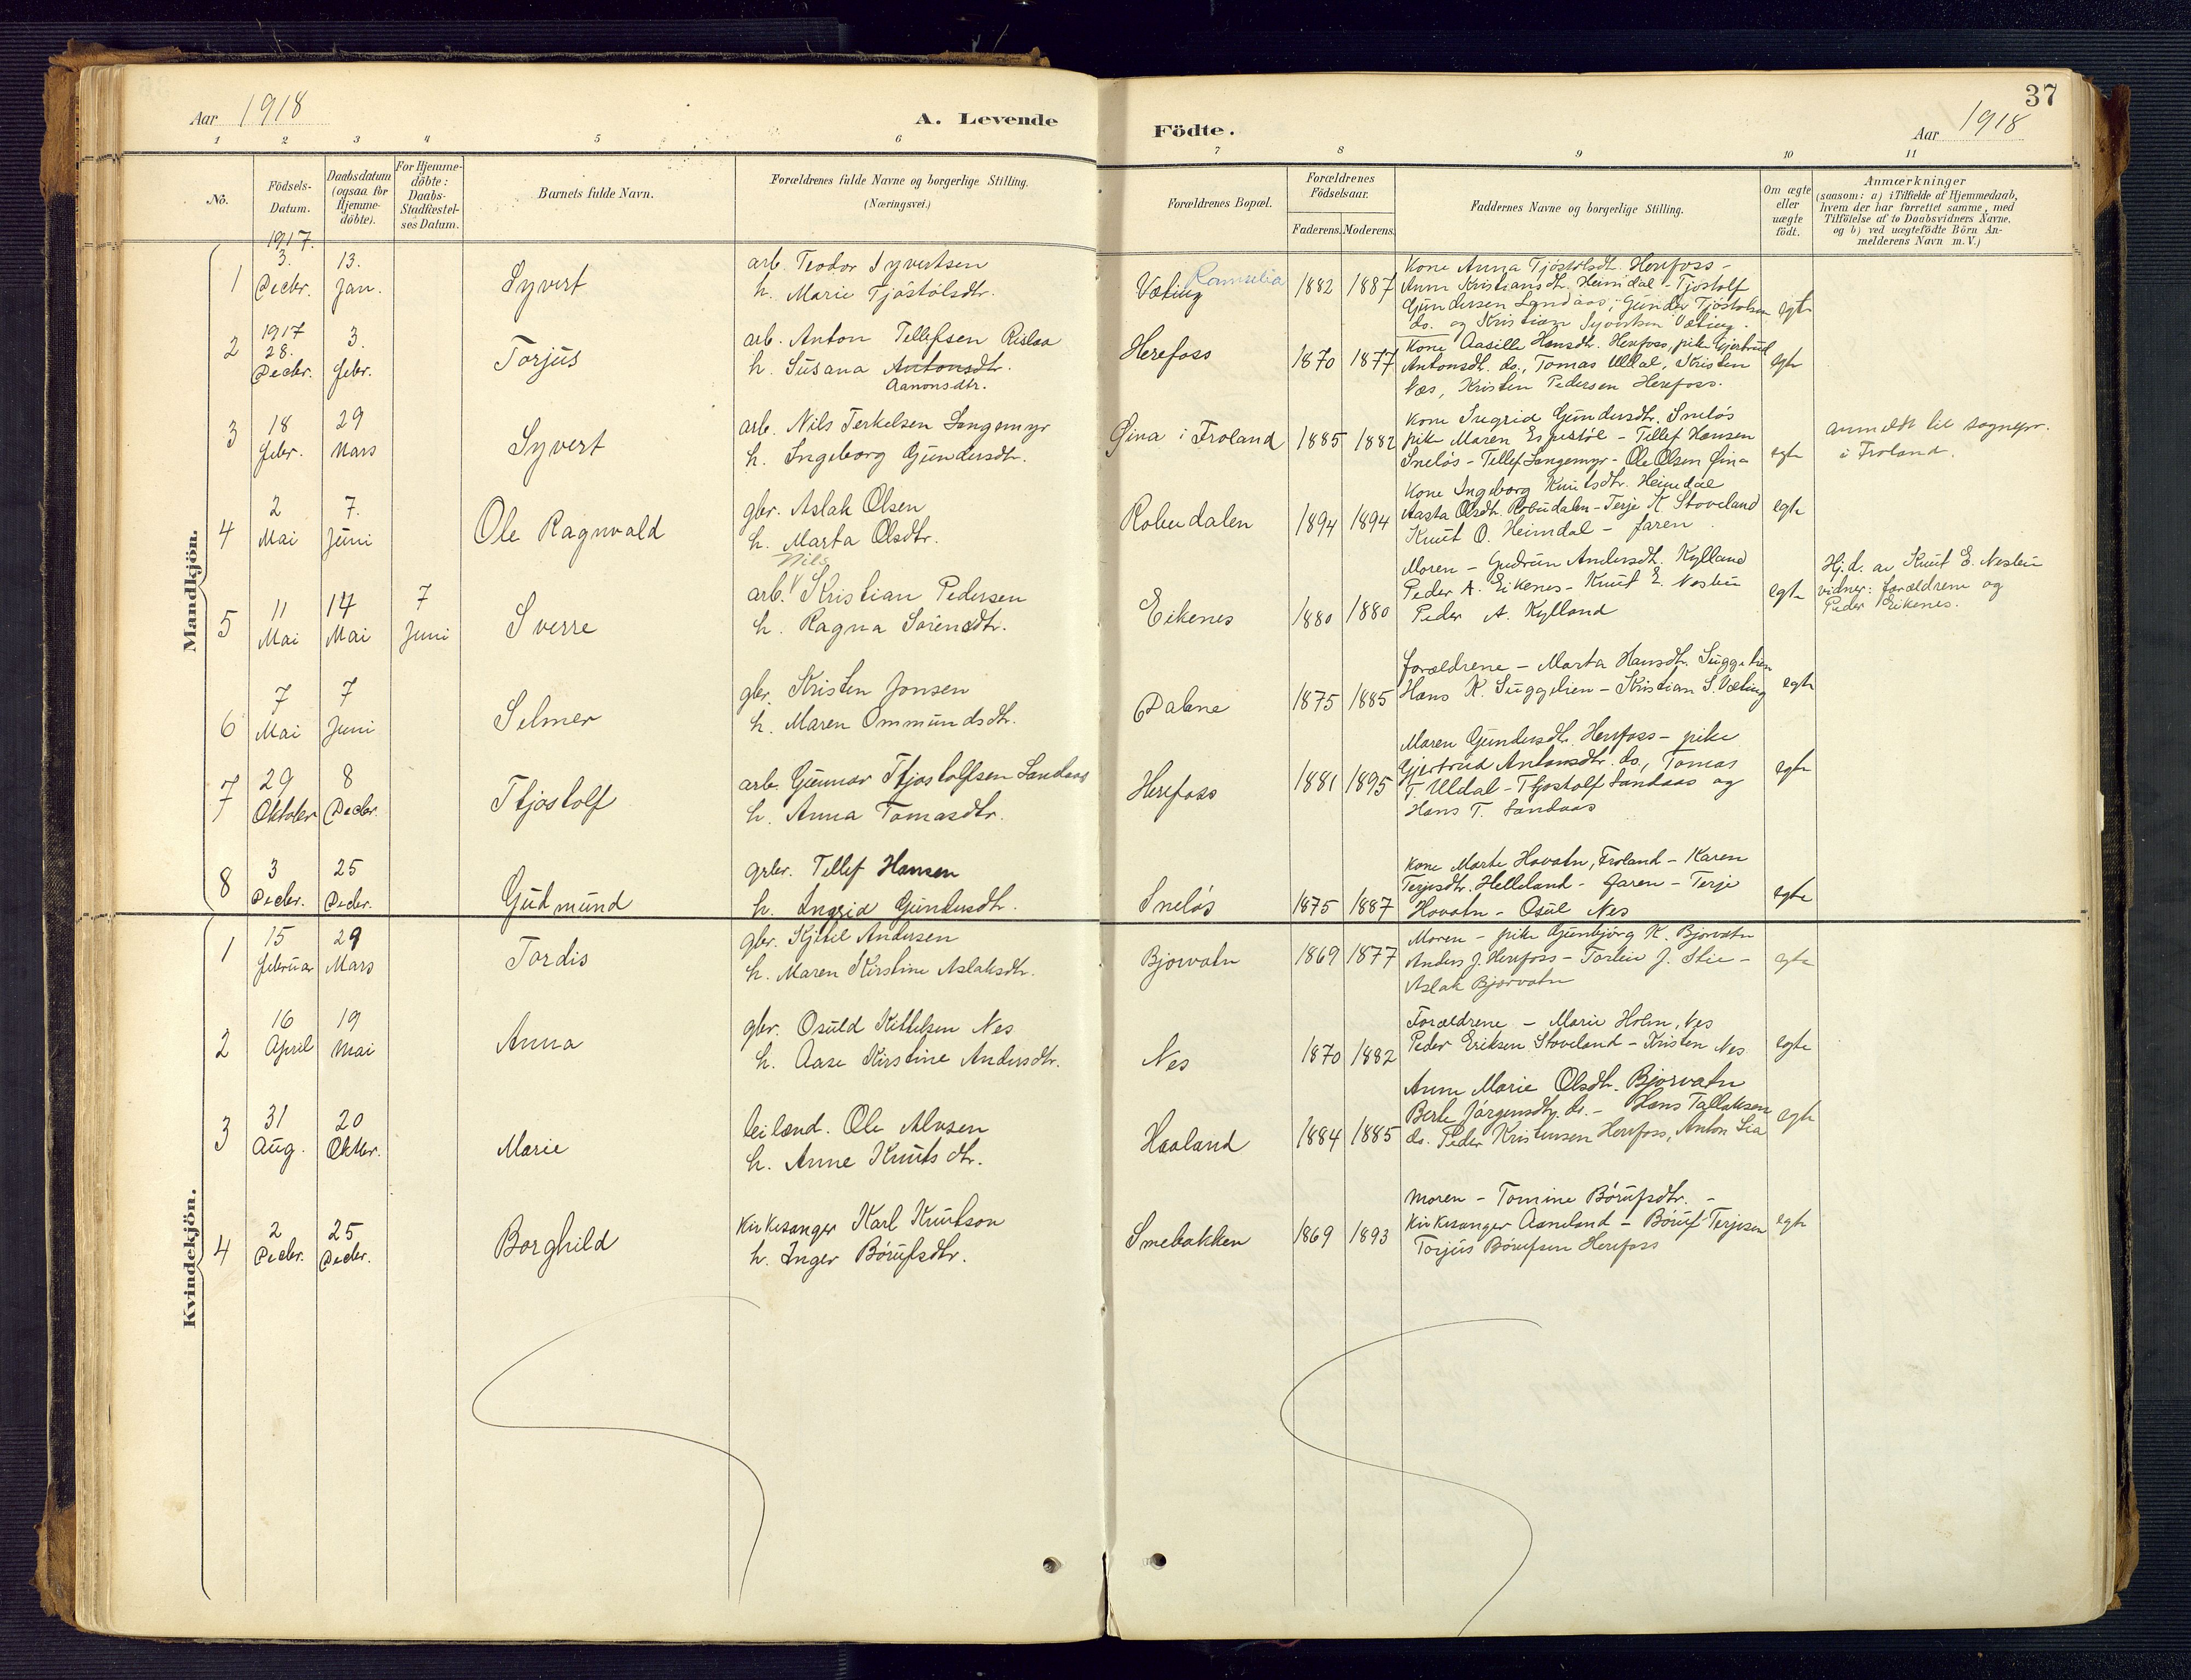 37
Aar 1918
A. Levende Födte.
Aar 1918
1 2 3 4 5 6 7 8 9 10 11
No.
Födsels-Datum.
Daabsdatum (ogsaa for Hjemme-döbte).
For Hjemme-döbte: Daabs-Stadfæstel-ses Datum.
Barnets fulde Navn.
Forældrenes fulde Navne og borgerlige Stilling. (Næringsvei.)
Forældrenes Bopæl.
Forældrenes Födselsaar.
Faderens. Moderens.
Faddernes Navne og borgerlige Stilling.
Om ægte eller uægte födt.
Anmærkninger (saasom: a) i Tilfælde af Hjemmedaab, hvem der har forrettet samme, med Tilföielse af to Daabsvidners Navne, og b) ved uægtefödte Börn An-melderens Navn m. V.)
Mandkjön.
1917.
1 3. Decbr. 13. Jan. Syvert
arb. Teodor Syvertsen
h. Marie Tjöstölsdtr.
Væting 1882 1887
Kone Anna Tjöstölsdtr. Herefoss -
Anna Kristiansdtr. Heimdal - Tjöstolf
Gundersen Landaas, Gunder Tjöstolsen
do. og Kristian Syvertsen Væting.
egte
2 1917 28. Decbr. 3. febr. Torjus
arb. Anton Tellefsen Rislaa
h. Susana Antonsdtr.
Aanonsdtr.
Herefoss 1870 1877
Kone Aasille Hansdtr. Herefoss, pike Gjertrud
Antonsdtr. do., Tomas Uldal, Kristen
Næs, Kristen Pedersen Herefoss.
egte
3 18 febr. 29 Mars Syvert
arb. Nils Terkelsen Langemyr
h. Ingeborg Gundersdtr.
Øina i Froland 1885 1882
Kone Ingrid Gundersdtr. Sneløs
pike Maren Espestöl - Tellef Hansen
Sneløs - Tellef Langemyr - Ole Olsen Øina
egte
anmeldt til sognepr.
i Froland.
4 2 Mai 7. Juni Ole Ragnvald
gbr. Aslak Olsen
h. Marta Olsdtr.
Robudalen 1894 1894
Kone Ingeborg Knutsdtr. Heimdal
Aasta Olsdtr. Robudalen - Terje K Stoveland
Knut O. Heimdal - faren
egte
5 11 Mai 14 Mai 7 Juni Sverre
Nils
arb. Kristian Pedersen
h. Ragna Sörensdtr.
Eikenes 1880 1880
Moren - Gudrun Andersdtr. Kylland
Peder A. Eikenes - Knut E. Neslein
Peder A. Kylland
egte
Hj.d. av Knut E. Neslein
vidner: forældrene og
Peder Eikenes.
6 7 Mai 7 Juni Selmer
gbr. Kristen Jonsen
h. Maren Ommundsdtr.
Dalene 1875 1885
forældrene - Marta Hansdtr. Suggelien
Hans K. Suggelien - Kristian S. Væting
egte
7 29 Oktober 8 Decbr. Tfjostolf
arb. Gunnar Tfjostolfsen Landaas
h. Anna Tomasdtr.
Herefoss 1881 1895
Maren Gundersdtr. Herefoss - pike
Gjertrud Antonsdtr. do., Tomas
T. Uldal - Tfjostolf Landaas og
Hans T. Landaas
egte
8 3 Decbr. 25 Decbr. Gudmund
gbr. Tellef Hansen
h. Ingrid Gundersdtr.
Sneløs 1875 1887
Kone Marte Hovatn, Froland - Karen
Terjesdtr. Helleland - faren - Terje
Hovatn - Osul Nes
egte
Kvindekjön.
1 15 februar 29 Mars Tordis
gbr. Kjetil Andersen
h. Maren Kirstine Aslaksdtr.
Bjorvatn 1869 1877
Moren - pike Gunbjörg K. Bjorvatn
Anders J. Herefoss - Torleiv J. Stie -
Aslak Bjorvatn
egte
2 16 April 19 Mai Anna
gbr. Osuld Kittelsen Nes
h. Aase Kirstine Andersdtr.
Nes 1870 1882
Forældrene - Marie Holm, Nes
Peder Eriksen Stoveland - Kristen Nes
egte
3 31 Aug. 20 Oktbr. Marie
leilænd. Ole Alvsen
h. Anne Knutsdtr.
Haaland 1884 1885
Anne Marie Olsdtr. Bjorvatn
Berte Jörgensdtr. do. - Hans Tallaksen
do. Peder Kristensen Herefoss, Anton Lia
egte
4 2 Decbr. 25 Decbr. Borghild
Kirkesanger Karl Knutson
h. Inger Börufsdtr.
Smebakken 1869 1893
Moren - Tomine Börufsdtr. -
Kirkesanger Aaneland - Böruf Terjesen
Torjus Börufsen Herefoss
egte